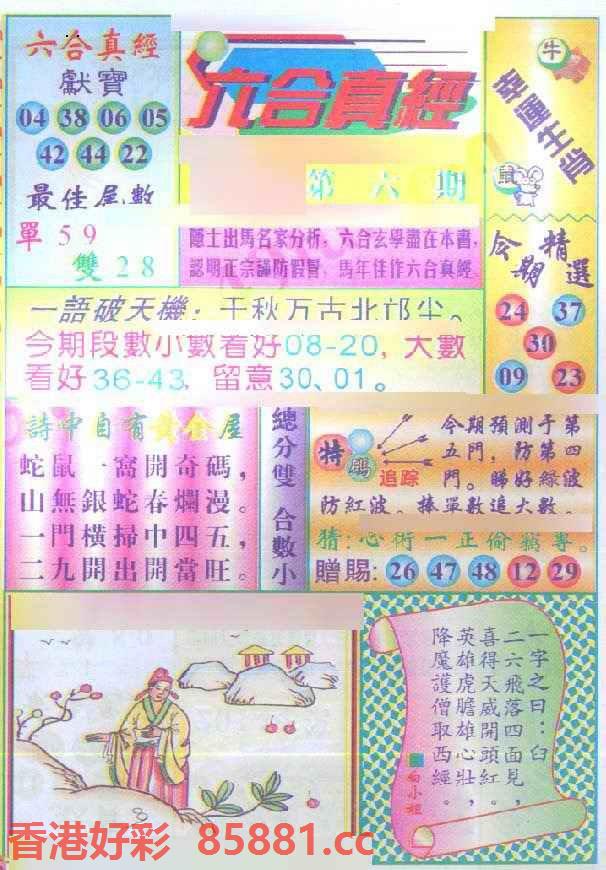 六合真經
獻寶
04 38 06 05
42 44 22
最佳尾數
單59
雙28
六合真經
第六期
隱士出馬名家分析，六合玄學盡在本書，
認明正宗謹防假冒，馬年佳作六合真經。
牛
幸運生肖
鼠
今期精選
24 37
30
09 23
一語破天機：千秋万古北邙尘。
今期段數小數看好08-20，大數
看好36-43，留意30、01。
詩中自有黃金屋
蛇鼠一窩開奇碼，
山無銀蛇春爛漫。
一門橫掃中四五，
二九開出開當旺。
總分雙 合數小
特碼
追踪
今期預測于第
五門，防第四
門。睇好綠波
防紅波。捧單數追大數。
猜：心術一正偷竊專。
贈賜：26 47 48 12 29
一字之曰：臼
二六飛落四面見，
喜得天威開頭紅。
英雄虎膽雄心壯，
降魔護僧取西經。
小姐
香港好彩 85881.cc